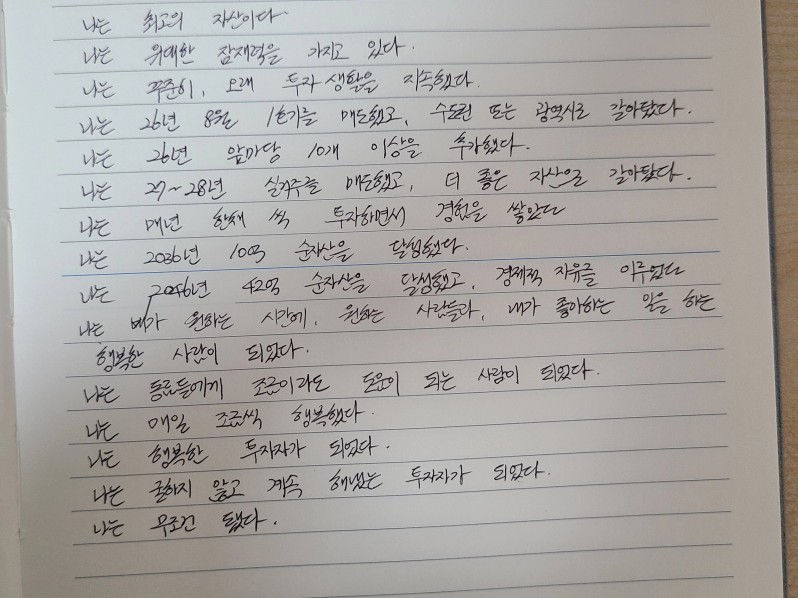 나는 최고의 자산이다
나는 위대한 잠재력을 가지고 있다.
나는 꾸준히, 오래 투자 생활을 지속했다.
나는 26년 8월 1호기를 매도했고, 수도권 또는 광역시로 갈아탔다.
나는 26년 앞마당 10개 이상을 추가했다.
나는 27~28년 실거주를 매도했고, 더 좋은 자산으로 갈아탔다.
나는 매년 한채 씩 투자하면서 경험을 쌓았다
나는 2036년 10억 순자산을 달성했다.
나는 2046년 42억 순자산을 달성했고, 경제적 자유를 이루었다
나는 내가 원하는 시간에, 원하는 사람들과, 내가 좋아하는 일을 하는
행복한 사람이 되었다.
나는 동료들에게 조금이라도 도움이 되는 사람이 되었다.
나는 매일 조금씩 행복했다.
나는 행복한 투자자가 되었다.
나는 굴하지 않고 계속 해냈는 투자자가 되었다.
나는 무조건 됐다.